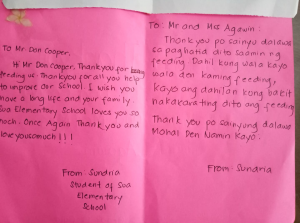 To Mr. Don Cooper,
Hi Mr. Don Cooper, Thankyou for being
feeding us. Thankyou for all you help
to unprove our School. I wish you
have a long life and your family.
Sua Elementary School loves you so
much. Once Again Thank you and
love you so much!!!
From: Sundria
Student of Sua
Elementary
School
To: Mr and Mrs Agawin:
Thank you po sainyo dalawa
so paghatid dito saamin ng
feeding. Dahil kung wala kayo
wala den kaming feeding,
Kayo ang dahilan kung bakit
nakakarating dito ang feeding
Thank you po sainyung dalawa
Mahal Den Namin Kayo.
From: Sundria